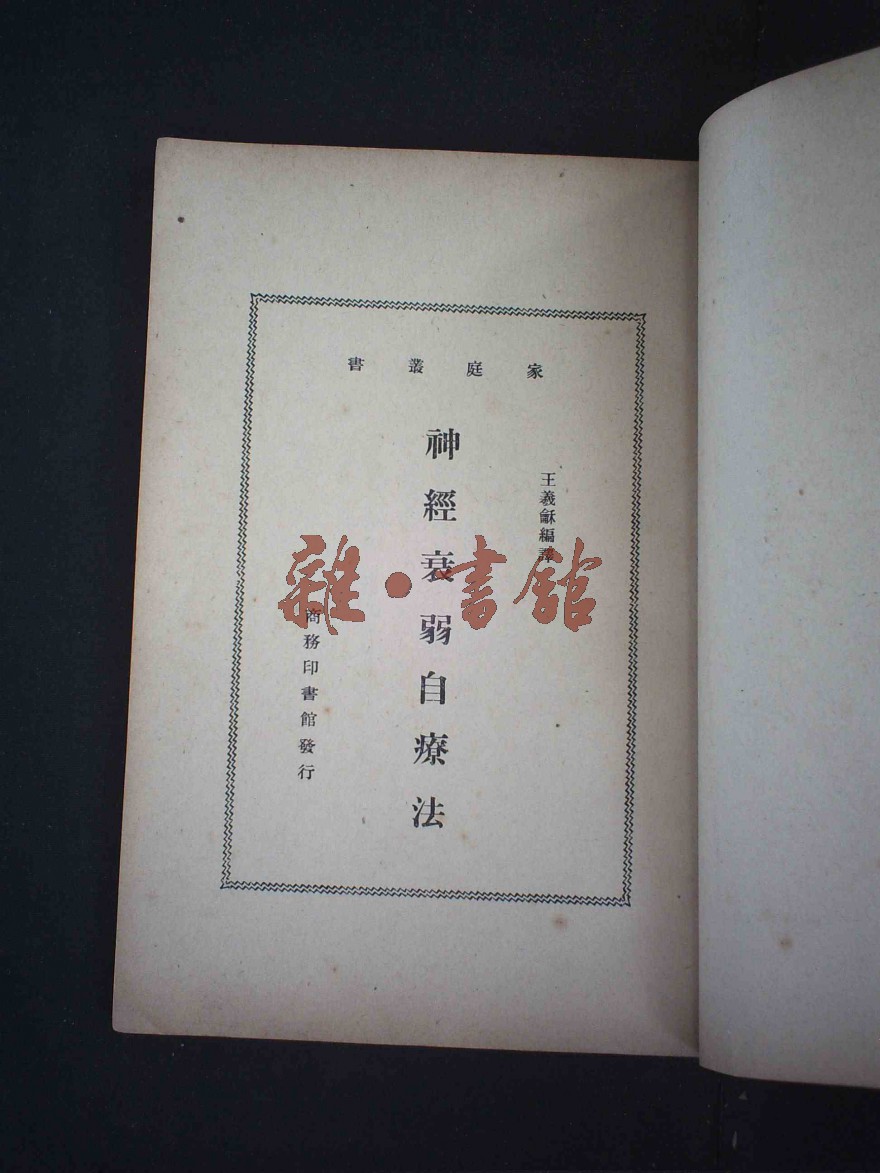 家庭叢書
王羲龢編譯
神經衰弱自療法
商務印書館發行
雜·書館